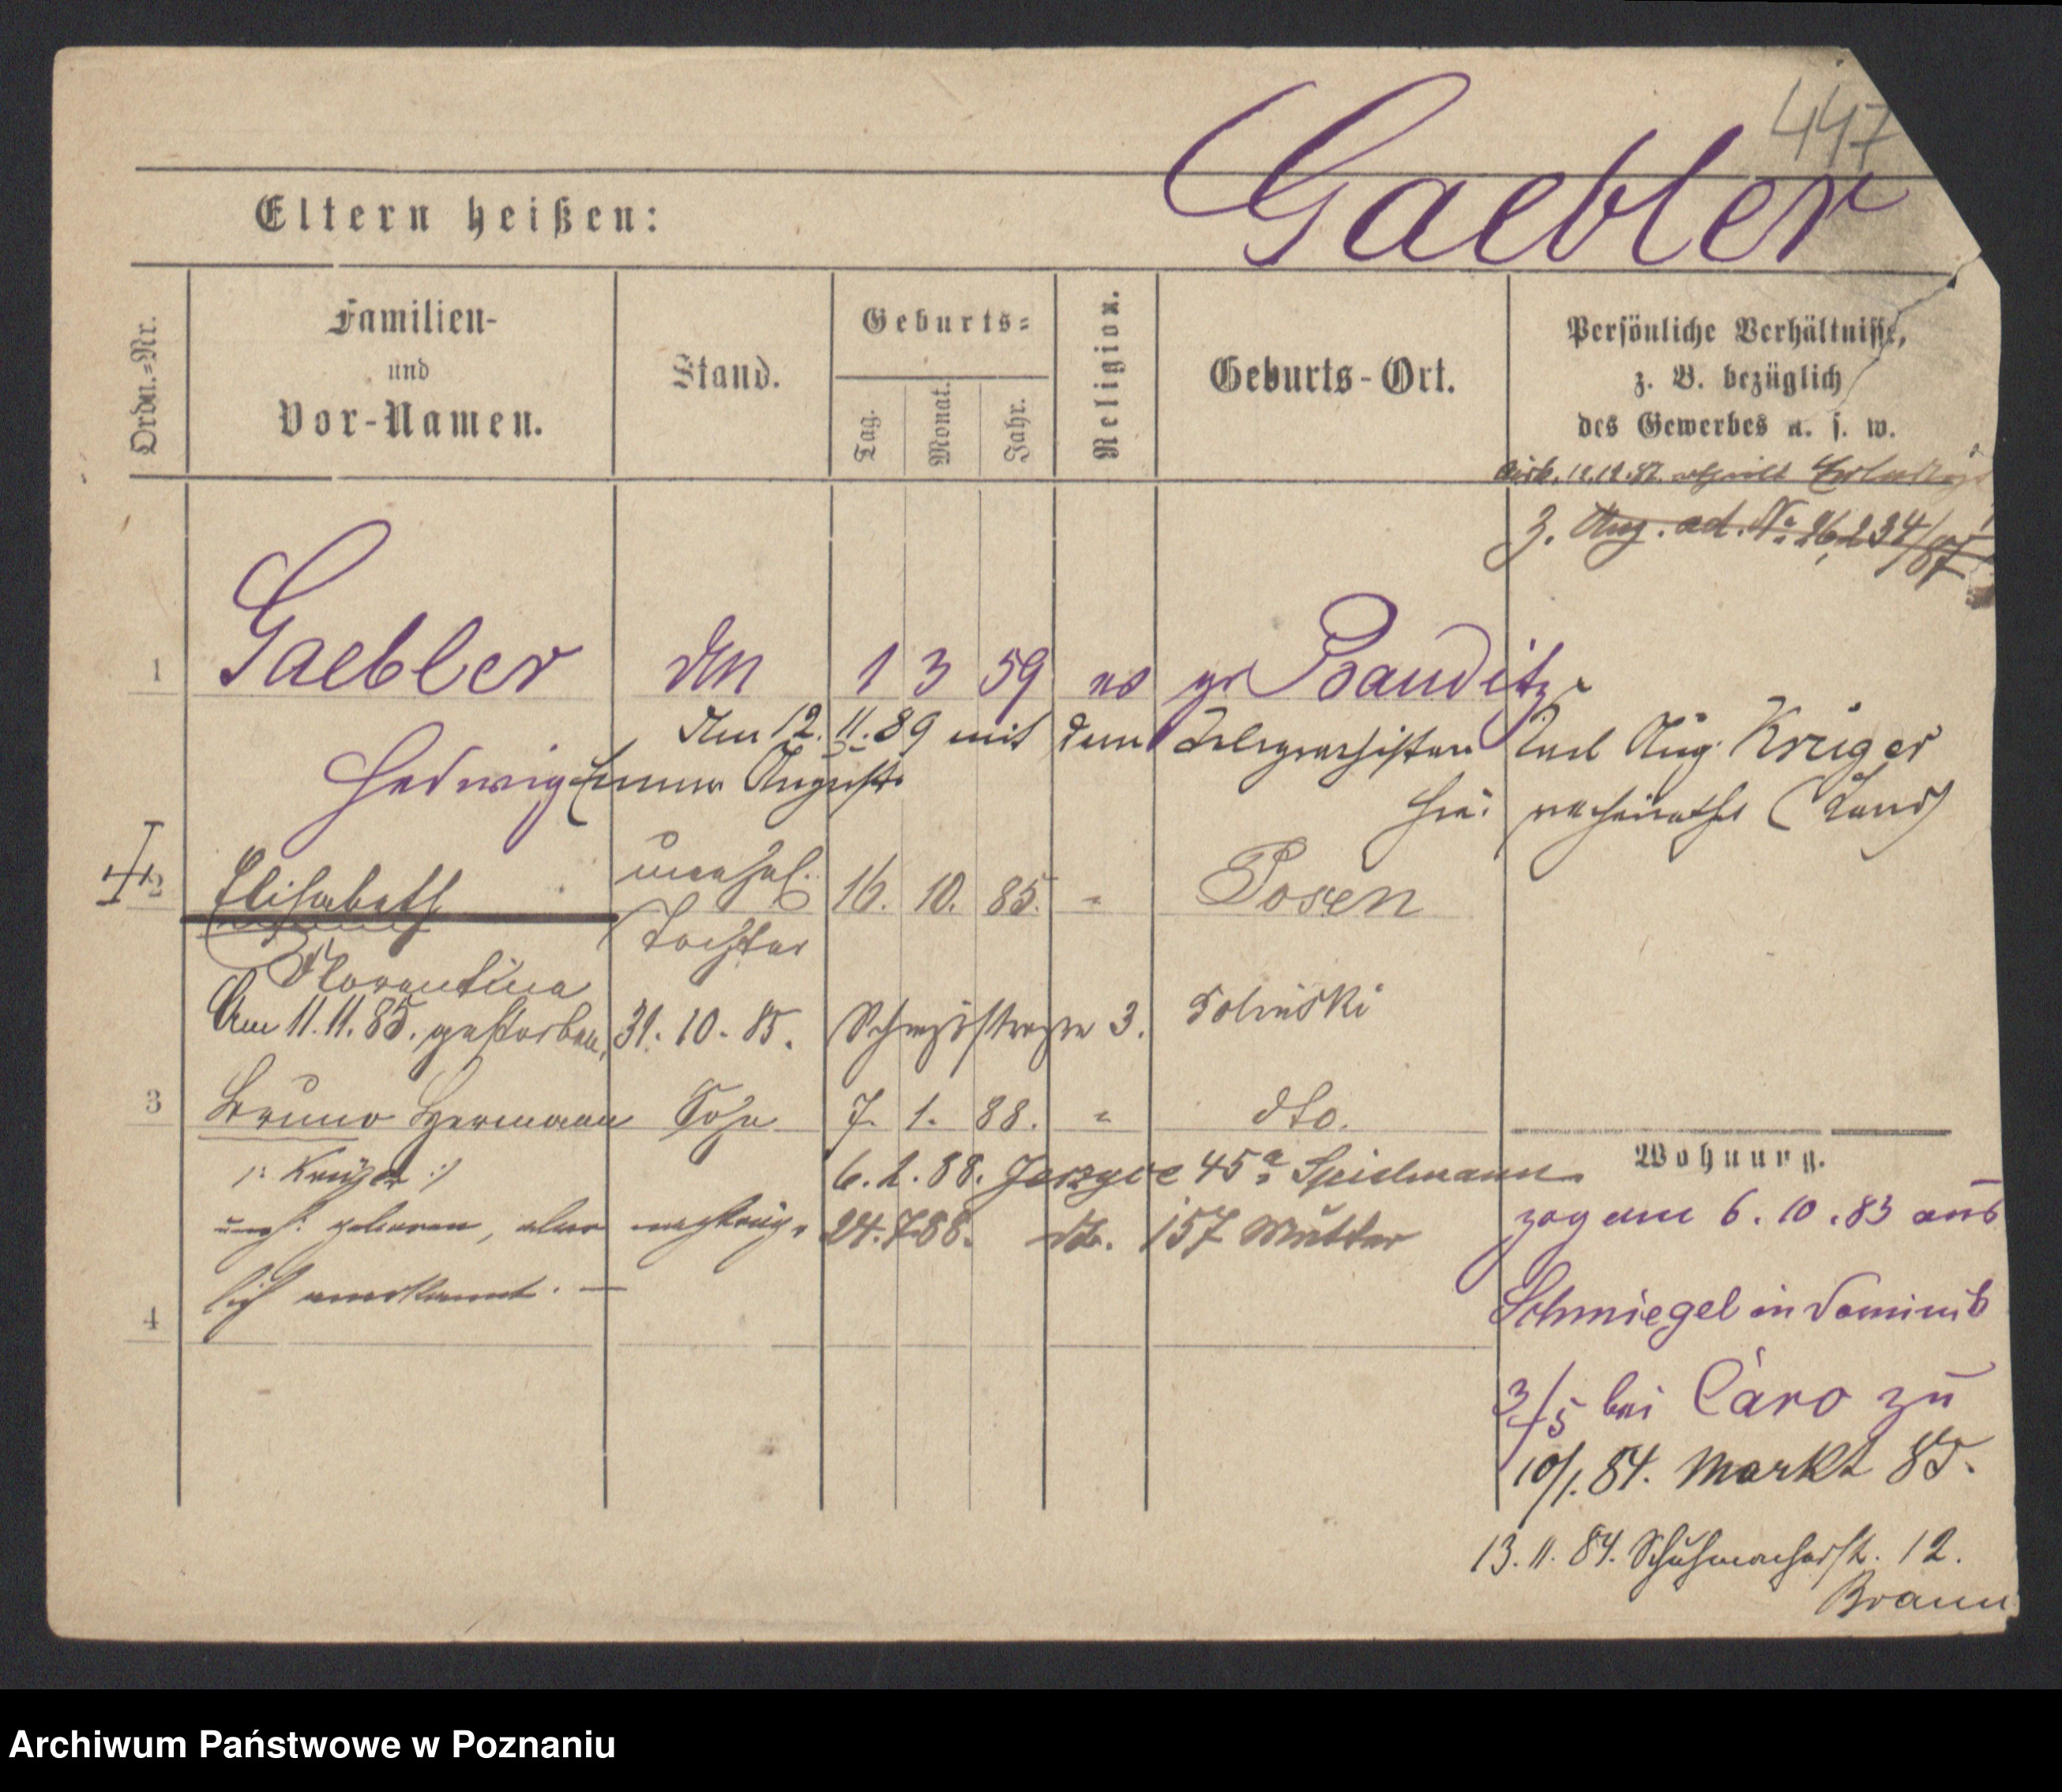 447
Gaebler
Eltern heißen:
Ordn.-Nr.
Familien-
und
Vor-Namen.
Stand.
Geburts-
Tag.
Monat.
Jahr.
Religion.
Geburts-Ort.
Persönliche Verhältnisse,
z. B. bezüglich
des Gewerbes u. s. w.
12.12.87.
z. Ang. ad. No 26234/87
1 Gaebler 1 3 59 gr Bauditz
Am 12. 11. 89 mit dem Telegraphisten Carl Aug. Krüger
Hedwig Emma August.
hier verheirathet (Land)
2 Elisabeth unehel. 16. 10. 85. " Posen
Tochter
Florentina
Am 11.11.85. gestorben, 31. 10. 85. 3.
3 Bruno Hermann Sohn 7. 1. 88. " dto.
/: Krüger :/ 6. 2. 88. Jerzyce 45a Speielmann
Wohnung.
uneh. geboren, aber nachträg- 24.7.88. dto. 157 Mutter
zog am 6. 10. 83 aus
lich anerkannt. —
4
Schmiegel in
3/5 bei Caro zu
10/1. 84. Markt 85.
13. 11. 84. Schuhmacherst. 12.
Braun
Archiwum Państwowe w Poznaniu